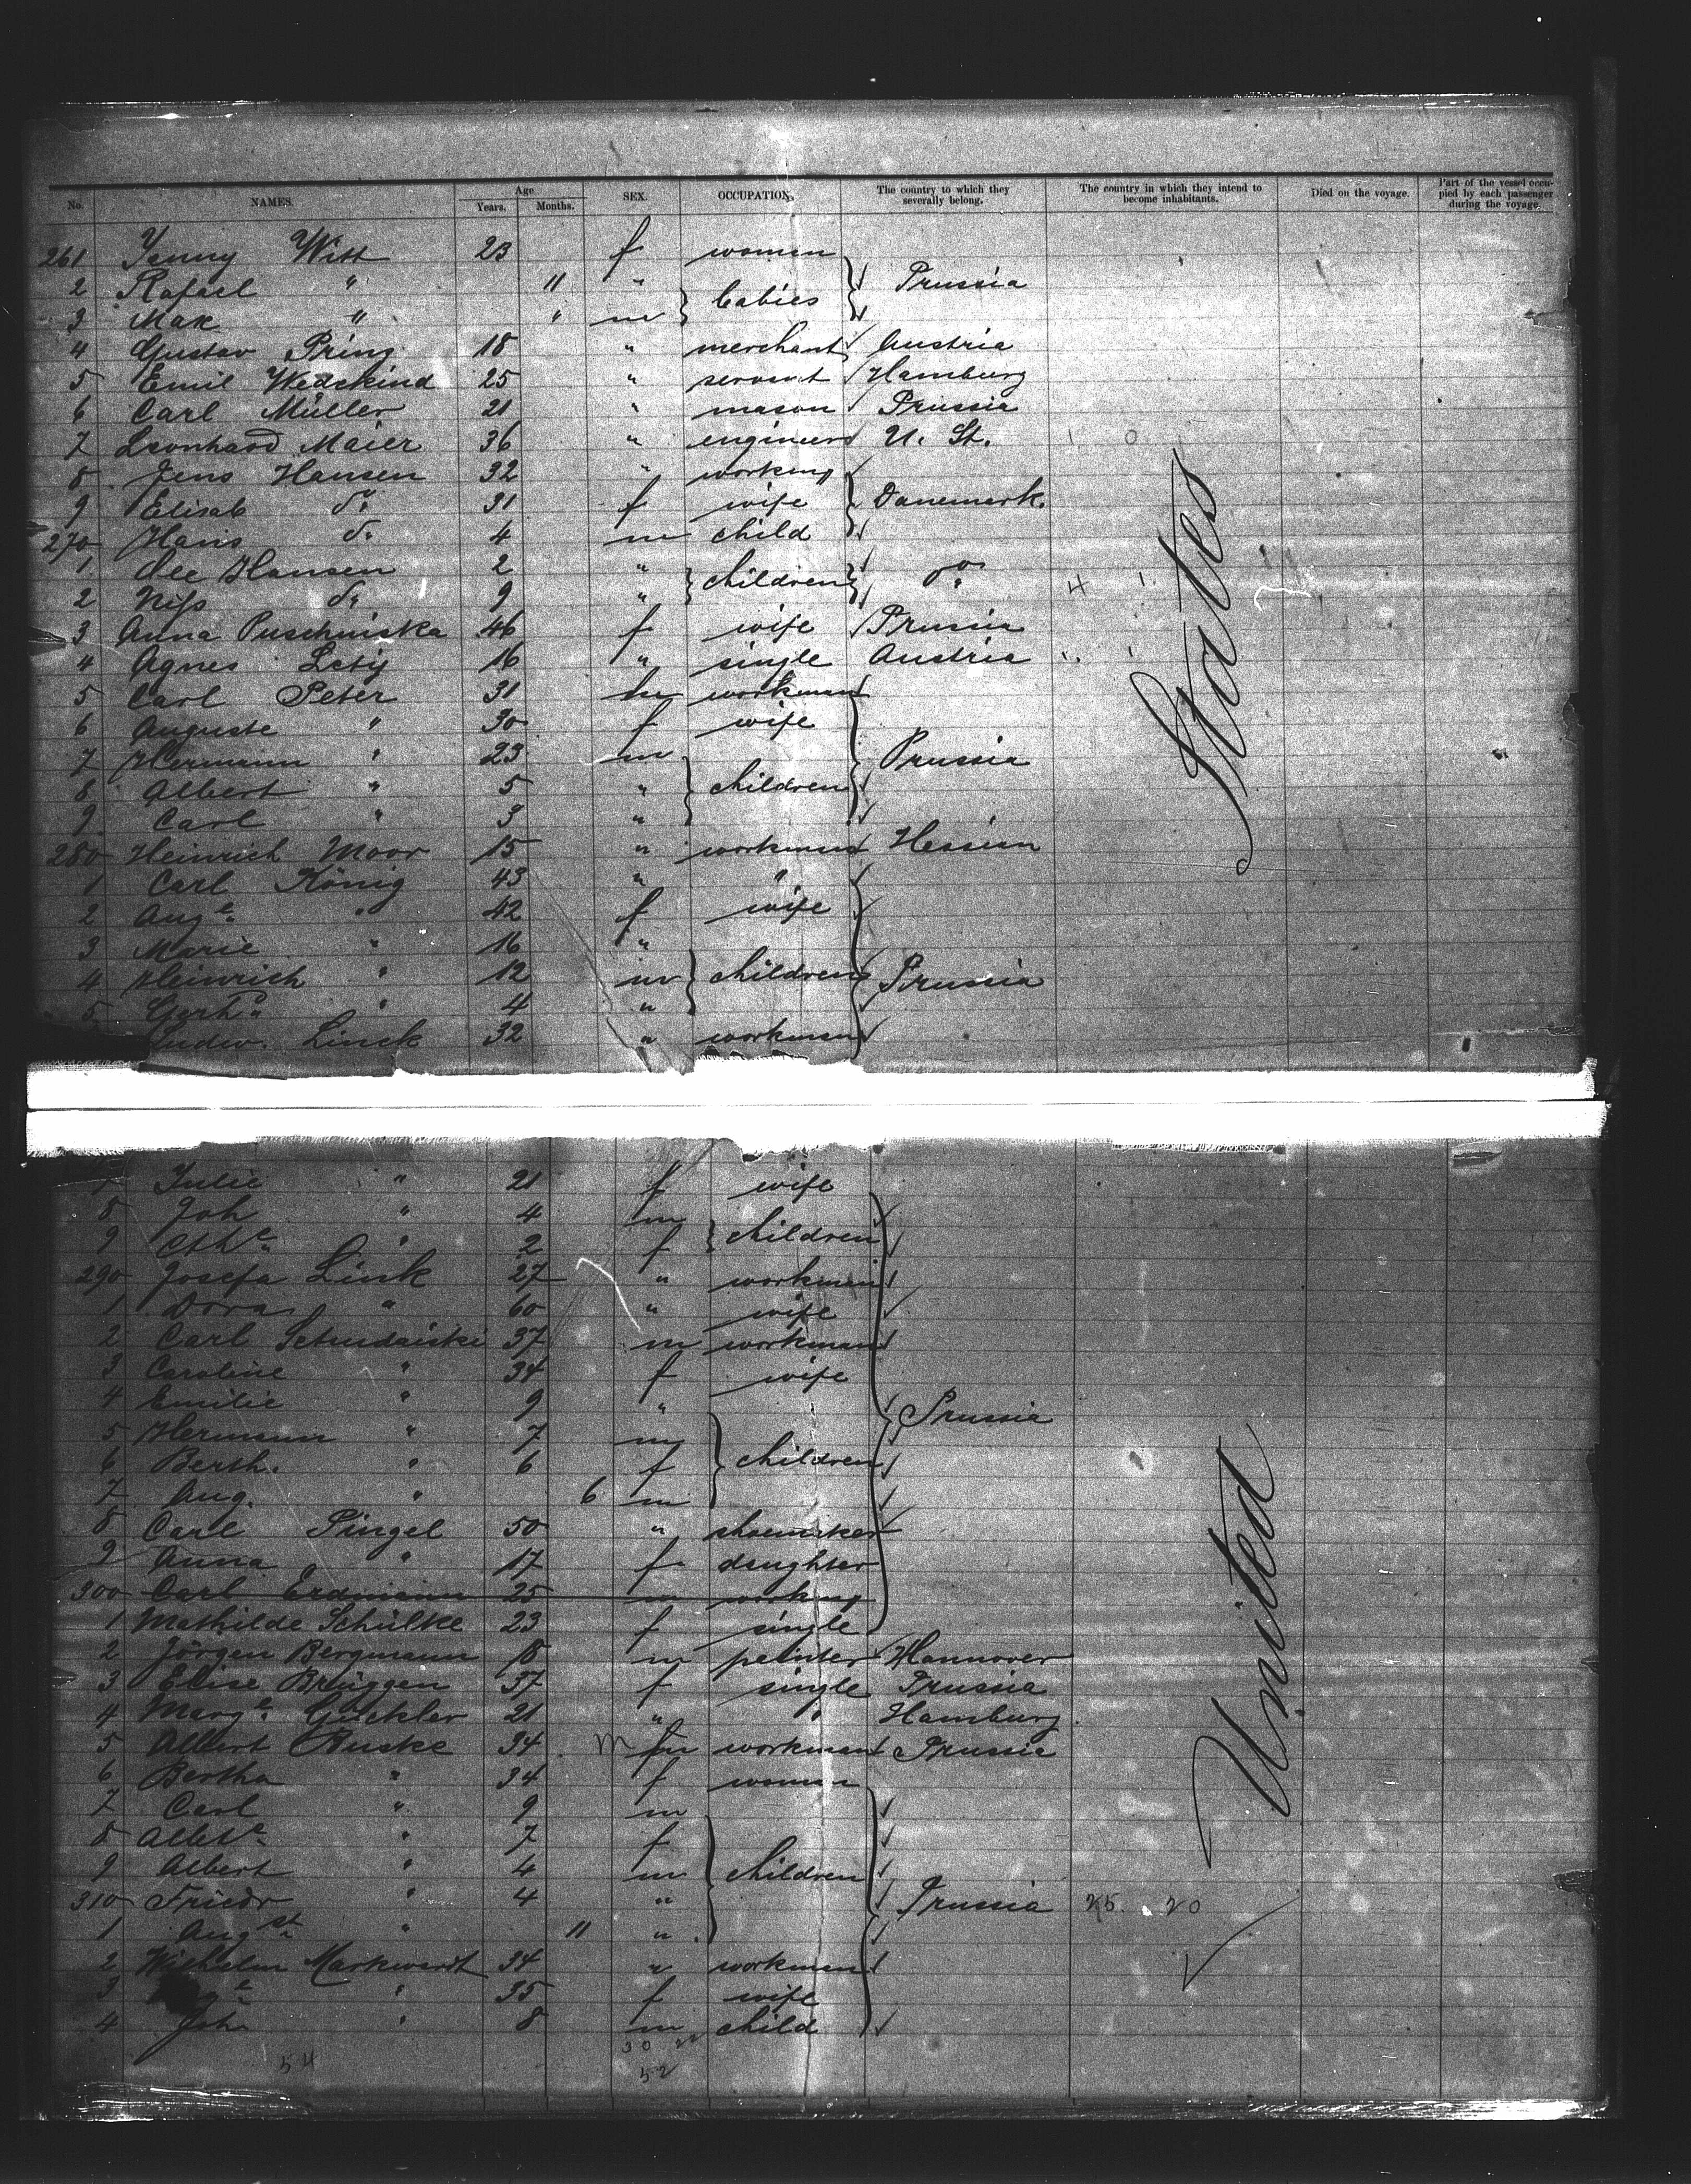 No. NAMES. Age Years. Months. SEX. OCCUPATION. The country to which they severally belong. The country in which they intend to become inhabitants. Died on the voyage. Part of the vessel occupied by each passenger during the voyage.
261 Jenny Witt 23 f women
2 Rafael " 11 " babies Prussia
3 Max " " m
4 Gustav Pring 18 " merchant Austria
5 Emil Wedekind 25 " servant Hamburg
6 Carl Müller 21 " mason Prussia
7 Leonhard Maier 36 " engineer U. St.
8 Jens Hansen 32 " working
9 Elisab do 31 f wife Danemark.
270 Hans do 4 m child
1 Ole Hansen 2 " children do
2 Niss do 9 "
3 Anna Puschniska 46 f wife Prussia
4 Agnes 16 " single Austria
5 Carl Peter 31 m workman
6 Auguste " 30 f wife
7 Hermann " 23 m Prussia
8 Albert " 5 " children
9 Carl " 3 "
280 Heinrich Moor 15 " workman Hessen
1 Carl König 43 " "
2 Auge " 42 f wife
3 Marie " 16 "
4 Heinrich " 12 m children Prussia
5 Gerhd " 4 "
Ludw. Linck 32 " workman
7 Julie " 21 f wife
8 Joh " 4 m children
9 Cthe " 2 f
290 Josefa Link 27 " workman
1 Dora " 60 " wife
2 Carl 37 m workman
3 Caroline " 34 f wife
4 Emilie " 9 " Prussia
5 Hermann " 7 m
6 Berth. " 6 f children
7 Aug. " 6 m
8 Carl Pingel 50 " shoemaker
9 Anna " 17 f daughter
300 Carl Erdmann 25 m working
1 Mathilde Schülke 23 f single
2 Jörgen Bergmann 18 m peinter Hannover
3 Elise Brüggen 37 f single Prussia
4 Marge Gückler 21 " " Hamburg
5 Albert Ruske 34 m workman Prussia
6 Bertha " 34 f woman
7 Carl " 9 m
8 Albte " 7 f
9 Albert " 4 m children
310 Friedr " 4 " Prussia 25 20
1 Augst " 11 "
2 Wilhelm Markwardt 34 " workman
3 " 35 f wife
4 Joh " 8 m child
54 30 22
52
United States